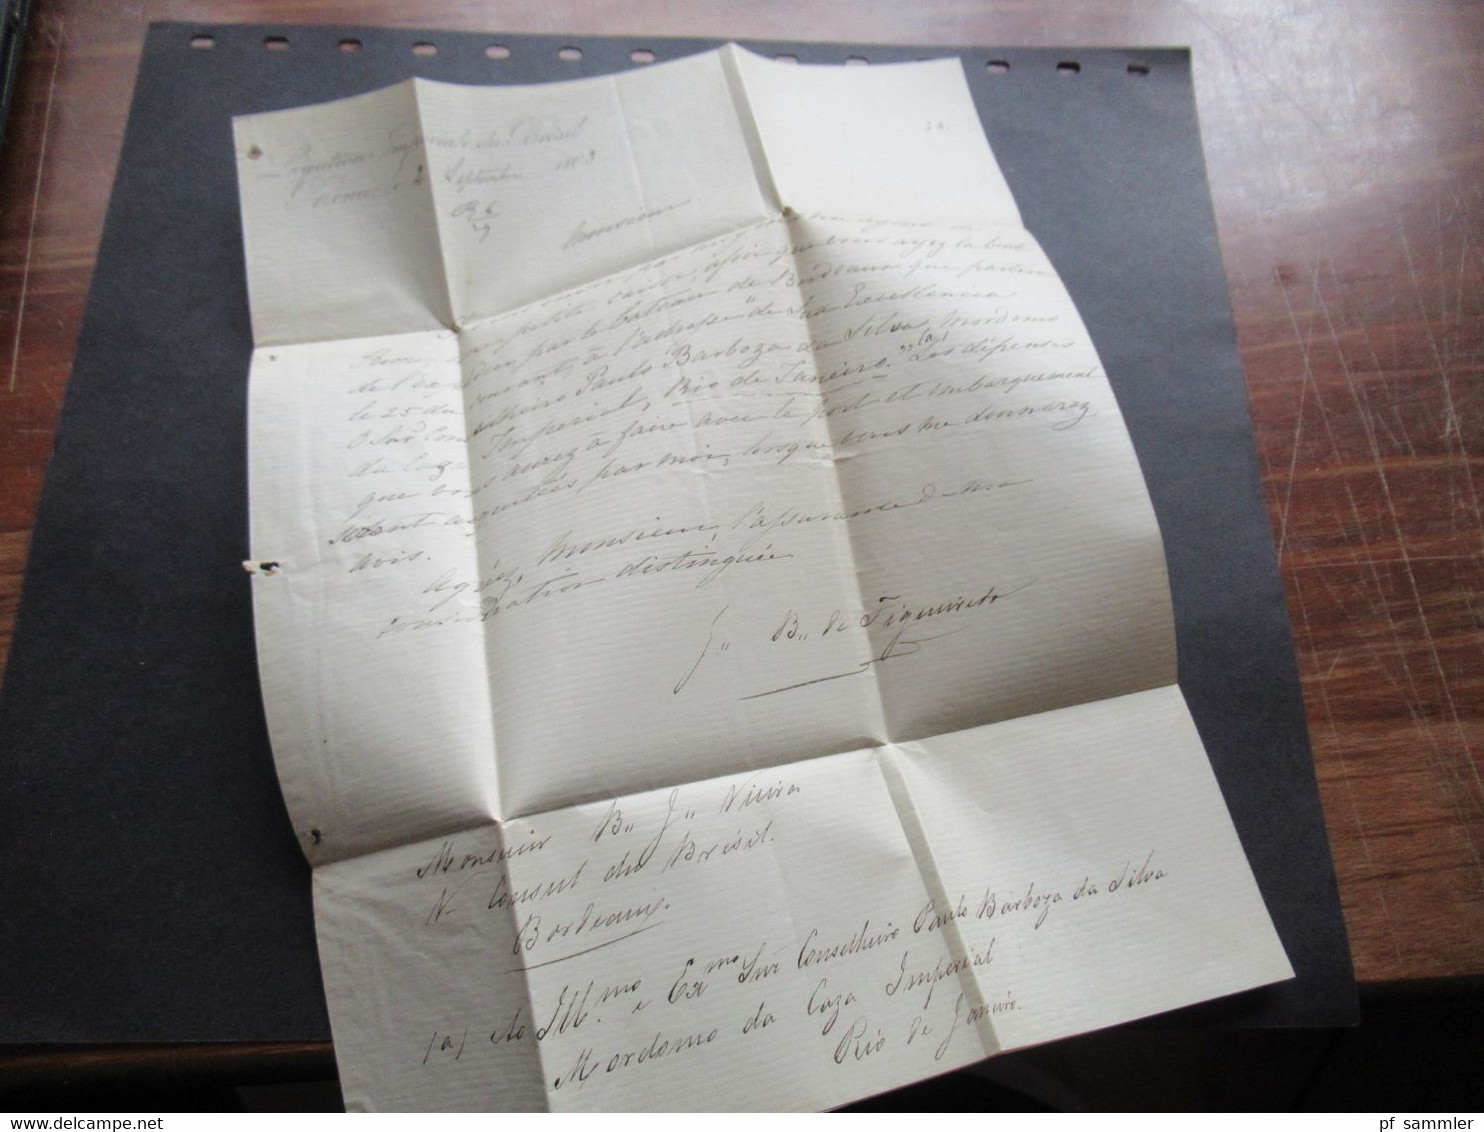 Légation Impériale du Brésil
Rome, le 2 Septembre 1863
Monsieur
petite caisse, afin que vous ayez la bonté
de l'expédier par le bateau de Bordeaux que partira
le 25 du courant, à l'adresse "de Sua Excellencia
O Snr Conselheiro Paulo Barboza da Silva, Mordomo
da Caza Imperial, Rio de Janeiro." (a) Les dépenses
que vous aurez à faire avec le port et embarquement
seront acquittées par moi, lorsque vous me donnerez
avis.
Agréez, Monsieur, l'assurance de ma
considération distinguée
J" B" de Figueiredo
Monsieur B" J" Vieira
V. Consul du Brésil.
Bordeaux.
(a) Ao Ill.mo e Ex.mo Snr Conselheiro Paulo Barboza da Silva
Mordomo da Caza Imperial
Rio de Janeiro.
pf sammler